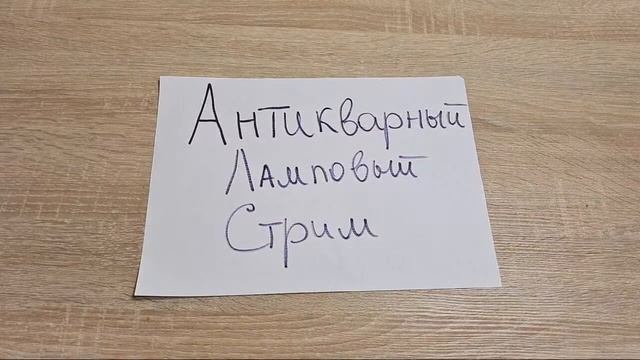 Антикварный
Ламповый
Стрим